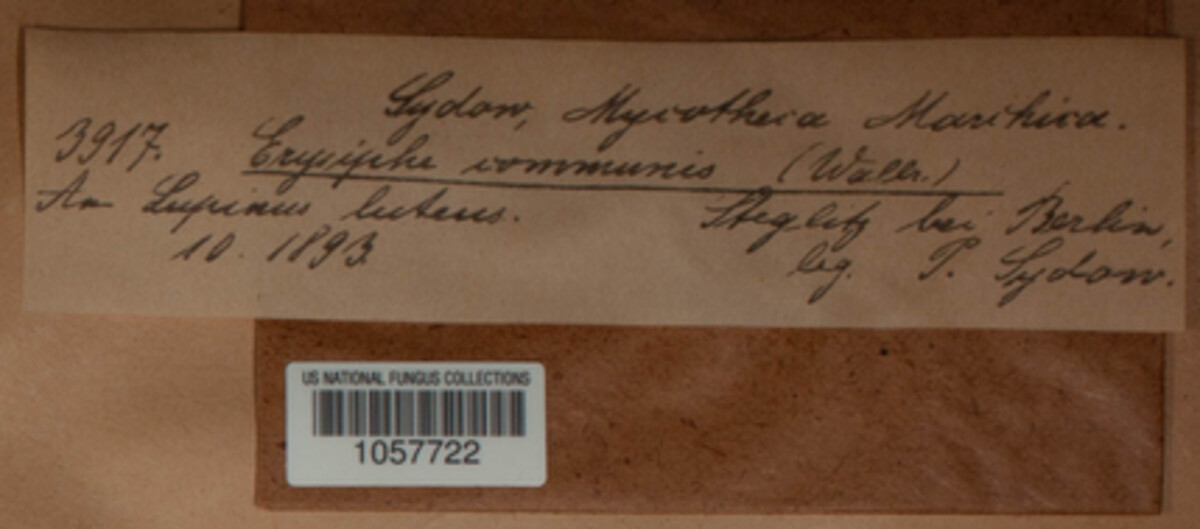 Sydow, Mycotheca Marchica.
3917. Erysiphe communis (Wallr.)
An Lupinus luteus. Steglitz bei Berlin,
10. 1893. leg. P. Sydow.
US NATIONAL FUNGUS COLLECTIONS
1057722